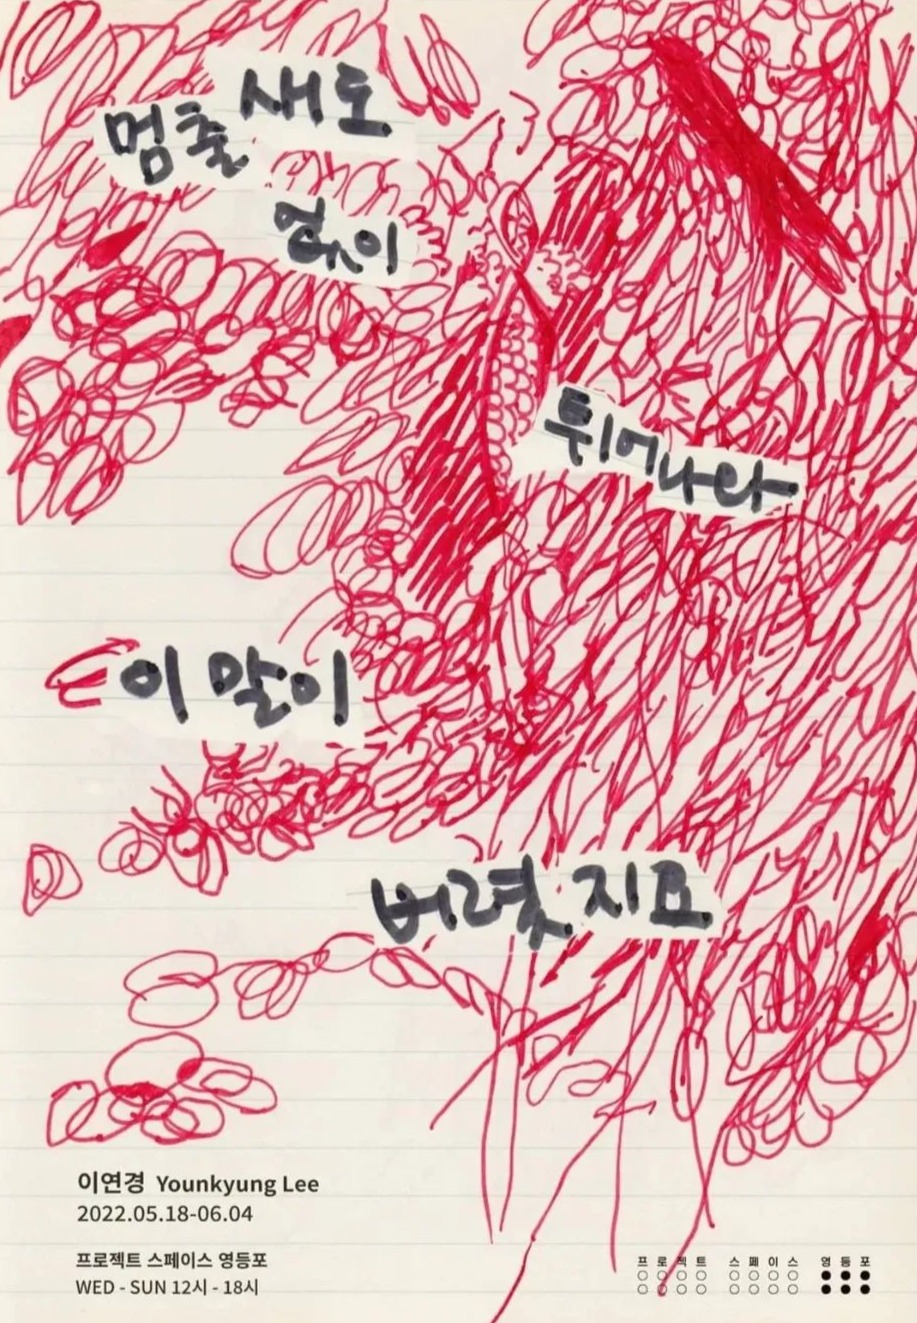 멈출 새도
없이
튀어나와
이 말이
버렸지요
이연경 Younkyung Lee
2022.05.18-06.04
프로젝트 스페이스 영등포
WED - SUN 12시 - 18시
프로젝트 스페이스 영등포